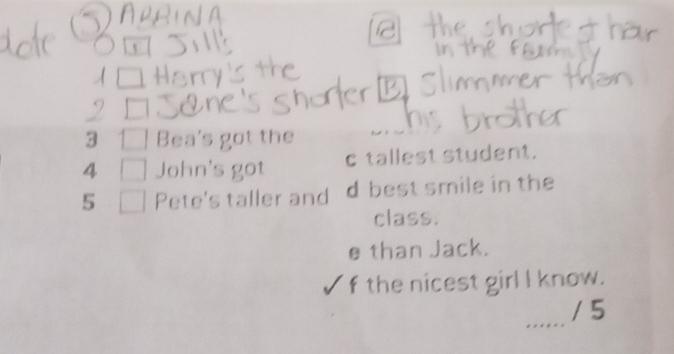 ③ ABBINA
0 Jill's
1 □ Harry's the
2 □ Jane's shorter
3 □ Bea's got the
4 □ John's got
5 □ Pete's taller and
a the shortest hair
in the family
B slimmer than
his brother
c tallest student.
d best smile in the
class.
e than Jack.
✓ f the nicest girl I know.
...... / 5